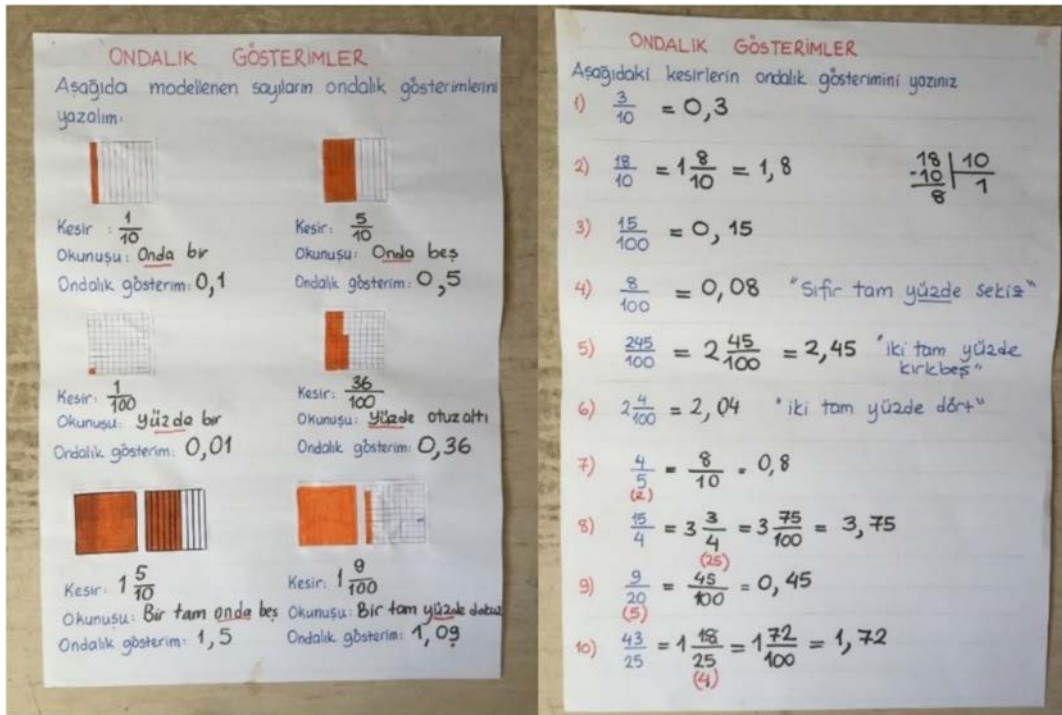 ONDALIK GÖSTERİMLER
Aşağıda modellenen sayıların ondalık gösterimlerini
yazalım:
Kesir : 1/10
Okunuşu: Onda bir
Ondalık gösterim: 0,1
Kesir: 5/10
Okunuşu: Onda beş
Ondalık gösterim: 0,5
Kesir: 1/100
Okunuşu: Yüzde bir
Ondalık gösterim: 0,01
Kesir: 36/100
Okunuşu: Yüzde otuzaltı
Ondalık gösterim: 0,36
Kesir: 1 5/10
Okunuşu: Bir tam onda beş
Ondalık gösterim: 1,5
Kesir: 1 9/100
Okunuşu: Bir tam yüzde dokuz
Ondalık gösterim: 1,09
ONDALIK GÖSTERİMLER
Aşağıdaki kesirlerin ondalık gösterimini yazınız
1) 3/10 = 0,3
2) 18/10 = 1 8/10 = 1,8
18 | 10
-10 | 1
8
3) 15/100 = 0,15
4) 8/100 = 0,08 "Sıfır tam yüzde sekiz"
5) 245/100 = 2 45/100 = 2,45 "iki tam yüzde
kırkbeş"
6) 2 4/100 = 2,04 "iki tam yüzde dört"
7) 4/5 = 8/10 = 0,8
(2)
8) 15/4 = 3 3/4 = 3 75/100 = 3,75
(25)
9) 9/20 = 45/100 = 0,45
(5)
10) 43/25 = 1 18/25 = 1 72/100 = 1,72
(4)